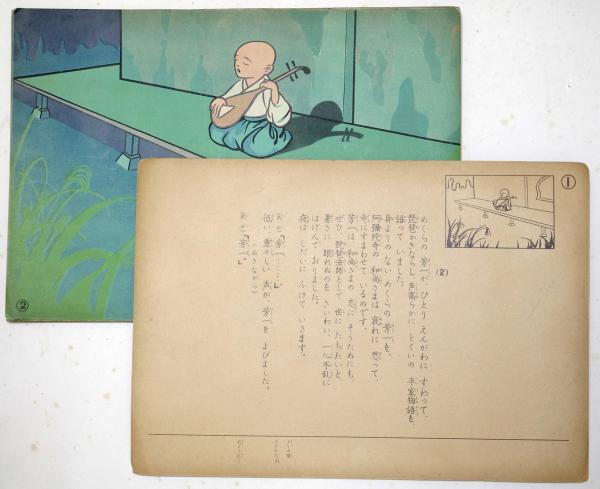 ②
①
(2)
めくらの 芳一が、ひとり えんがわに すわって、
琵琶かきならし、声高らかに とくいの 平家物語を、
語って いました。
身よりの ない めくらの 芳一を、
阿彌陀寺の 和尚さまは 哀れに 思って、
寺にすまわせて いるのです。
芳一は、和尚さまの 恩に そうためにも、
ぜひ、琵琶法師として 世に たちたいと
暑さに 眠れぬのを さいわい、一心不乱に
はげんで おりました。
夜は しだいに ふけて いきます。
「芳一……」
(ぬきながら)
低い、重々しい 声が、芳一を よびました。
「芳一」